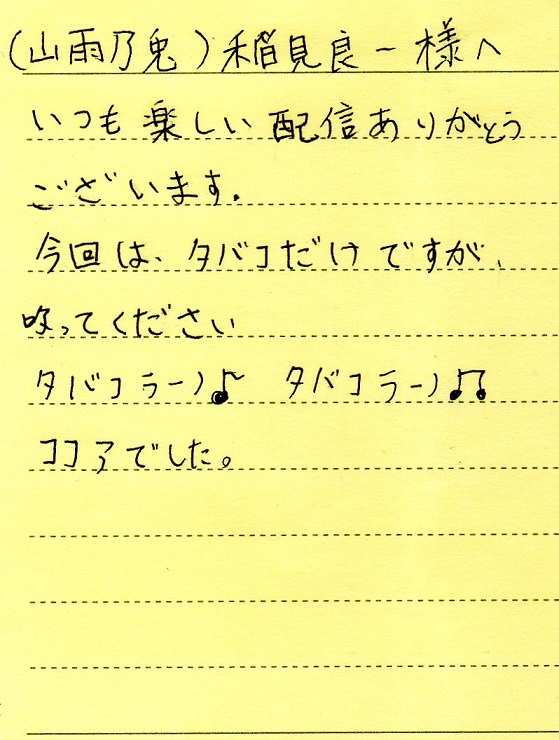 (山雨乃兎)稲見良一様へ
いつも楽しい配信ありがとう
ございます.
今回は、タバコだけですが、
吸ってください
タバコラーン♪ タバコラーン♫
ココアでした。